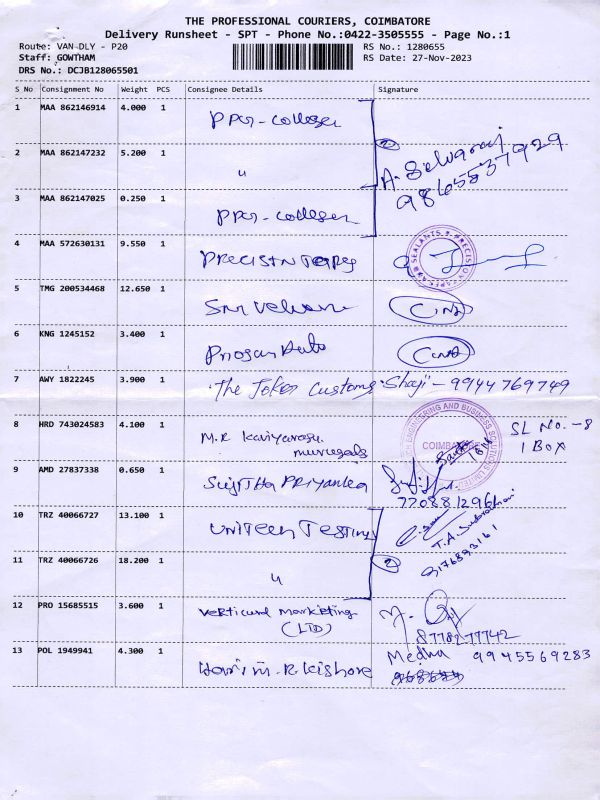 THE PROFESSIONAL COURIERS, COIMBATORE
Delivery Runsheet - SPT - Phone No.:0422-3505555 - Page No.:1
Route: VAN-DLY - P20
RS No.: 1280655
Staff: GOWTHAM
RS Date: 27-Nov-2023
DRS No.: DCJB128065501
S No Consignment No Weight PCS Consignee Details Signature
1 MAA 862146914 4.000 1
2 MAA 862147232 5.200 1 "
A. Selvaraj
9865537929
3 MAA 862147025 0.250 1
4 MAA 572630131 9.550 1
SEALANTS PRECISION
5 TMG 200534468 12.650 1
6 KNG 1245152 3.400 1
7 AWY 1822245 3.900 1 The Joker Customs Shaji - 9944769749
8 HRD 743024583 4.100 1 M.R
ENGINEERING AND BUSINESS SOLUTIONS
COIMBATORE
SL No. - 8
1 BOX
9 AMD 27837338 0.650 1 Sujitha Priyanka
7708812961
10 TRZ 40066727 13.100 1 Unitech Testing
T.A. Subramani
11 TRZ 40066726 18.200 1 " 2
12 PRO 15685515 3.600 1 Marketing
(LTD)
8778277742
13 POL 1949941 4.300 1 R. Kishore
Medhu 9945569283